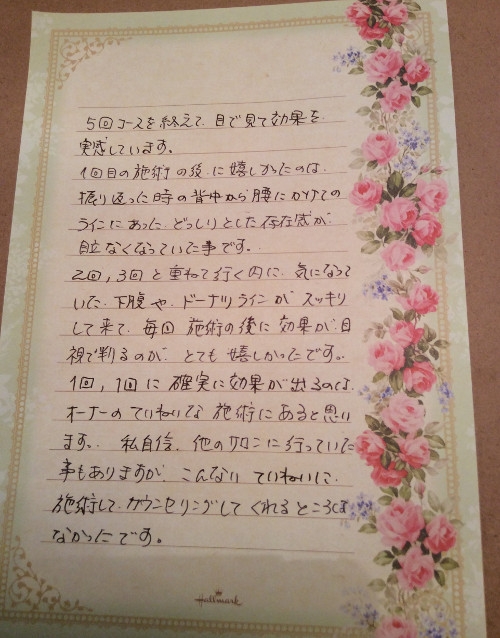 5回コースを終えて、目で見て効果を
実感しています。
1回目の施術の後に嬉しかったのは、
振り返った時の背中から腰にかけての
ラインにあった、どっしりとした存在感が、
目立なくなっていた事です。
2回、3回と重ねて行く内に、気になって
いた、下腹や、ドーナツラインが、スッキリ
して来て、毎回施術の後に効果が目
視で判るのが、とても嬉しかったです。
1回、1回に確実に効果が出るのは、
オーナーのていねいな施術にあると思い
ます。私自信、他のサロンに行っていた
事もありますが、こんなに、ていねいに、
施術して、カウンセリングしてくれるところは
なかったです。
Hallmark